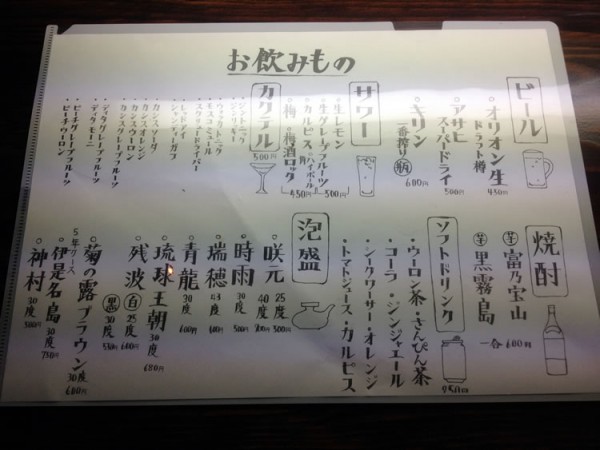 お飲みもの
ビール
・オリオン生
ドラフト樽
450円
・アサヒ
スーパードライ
500円
・キリン
一番搾り
瓶
600円
サワー
・生レモン
・生グレープフルーツ
・カルピス
500円
・角ハイボール
・梅酒ロック
450円
カクテル
500円
・ジントニック
・ジンリッキー
・ウォッカトニック
・モスコミュール
・スクリュードライバー
・レッドアイ
・シャンディガフ
・カシスソーダ
・カシスオレンジ
・カシスウーロン
・カシスグレープフルーツ
・ディタグレープフルーツ
・ディタモーニ
・ピーチグレープフルーツ
・ピーチウーロン
焼酎
芋 富乃宝山
芋 黒霧島
一合 600円
ソフトドリンク
・ウーロン茶・さんぴん茶
・コーラ・ジンジャエール
・シークワーサー・オレンジ
・トマトジュース・カルピス
250円
泡盛
咲元
25度 500円
40度 800円
時雨
30度
500円
瑞穂
43度
青龍
30度
600円
琉球王朝
30度
680円
残波
白 25度 600円
黒 30度 550円
菊の露ブラウン
30度
600円
5年クース
伊是名島
30度
750円
神村
30度
500円